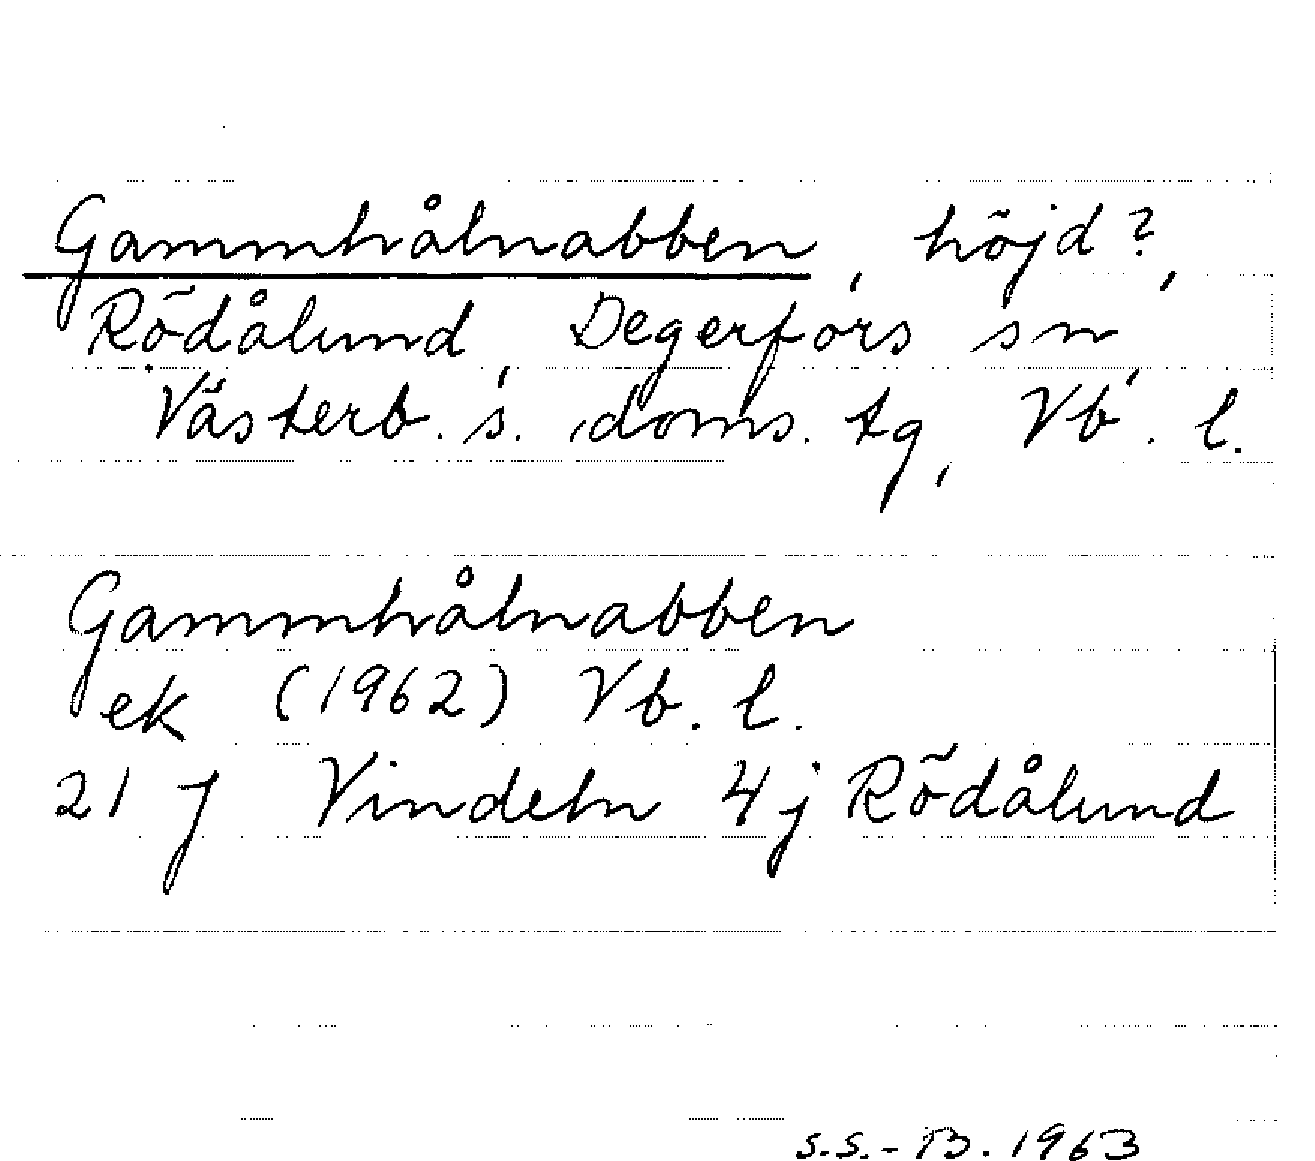 Gammhålnabben, höjd?,
Rödålund, Degerfors sn,
Västerb. s. doms. tg, Vb. l.
Gammhålnabben
ek (1962) Vb. l.
21 J Vindeln 4j Rödålund
S.S.-B. 1963